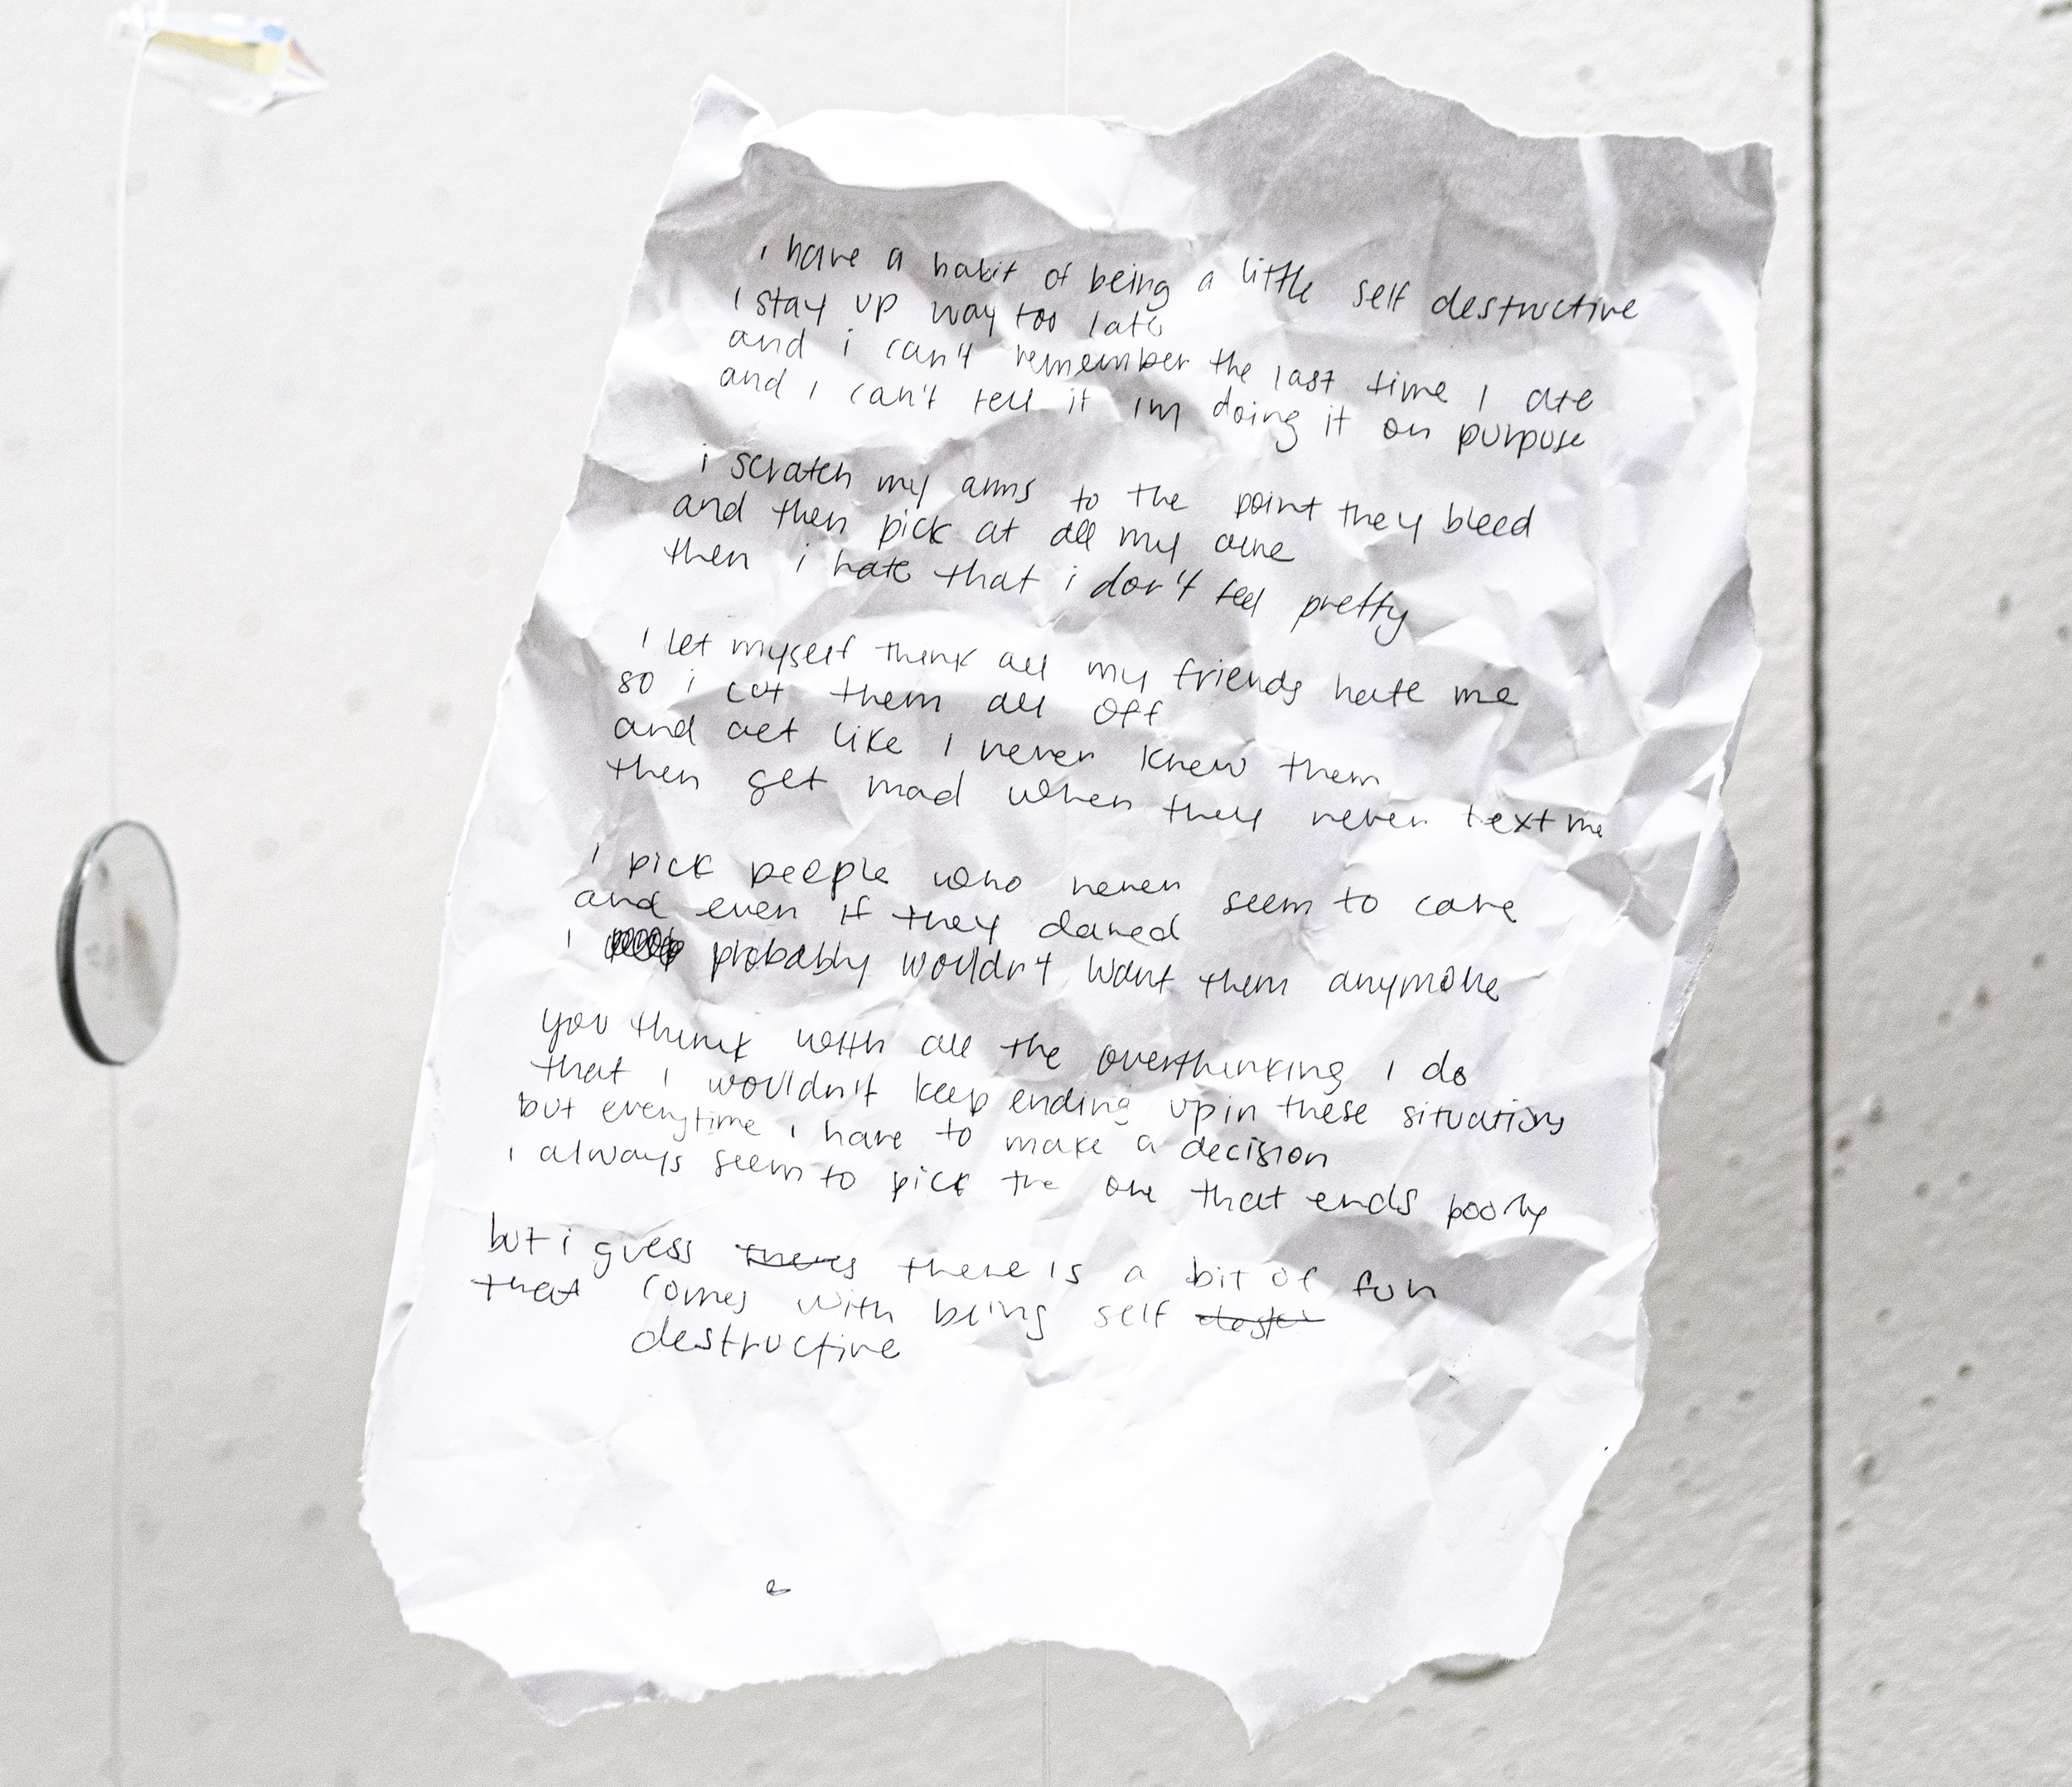 i have a habit of being a little self destructive
i stay up way too late
and i can't remember the last time i ate
and i can't tell if im doing it on purpose
i scratch my arms to the point they bleed
and then pick at all my acne
then i hate that i don't feel pretty
i let myself think all my friends hate me
so i cut them all off
and act like i never knew them
then get mad when they never text me
i pick people who never seem to care
and even if they dared
i probably wouldn't want them anymore
you think with all the overthinking i do
that i wouldn't keep ending up in these situations
but everytime i have to make a decision
i always seem to pick the one that ends poorly
but i guess theres there is a bit of fun
that comes with being self
destructive
e